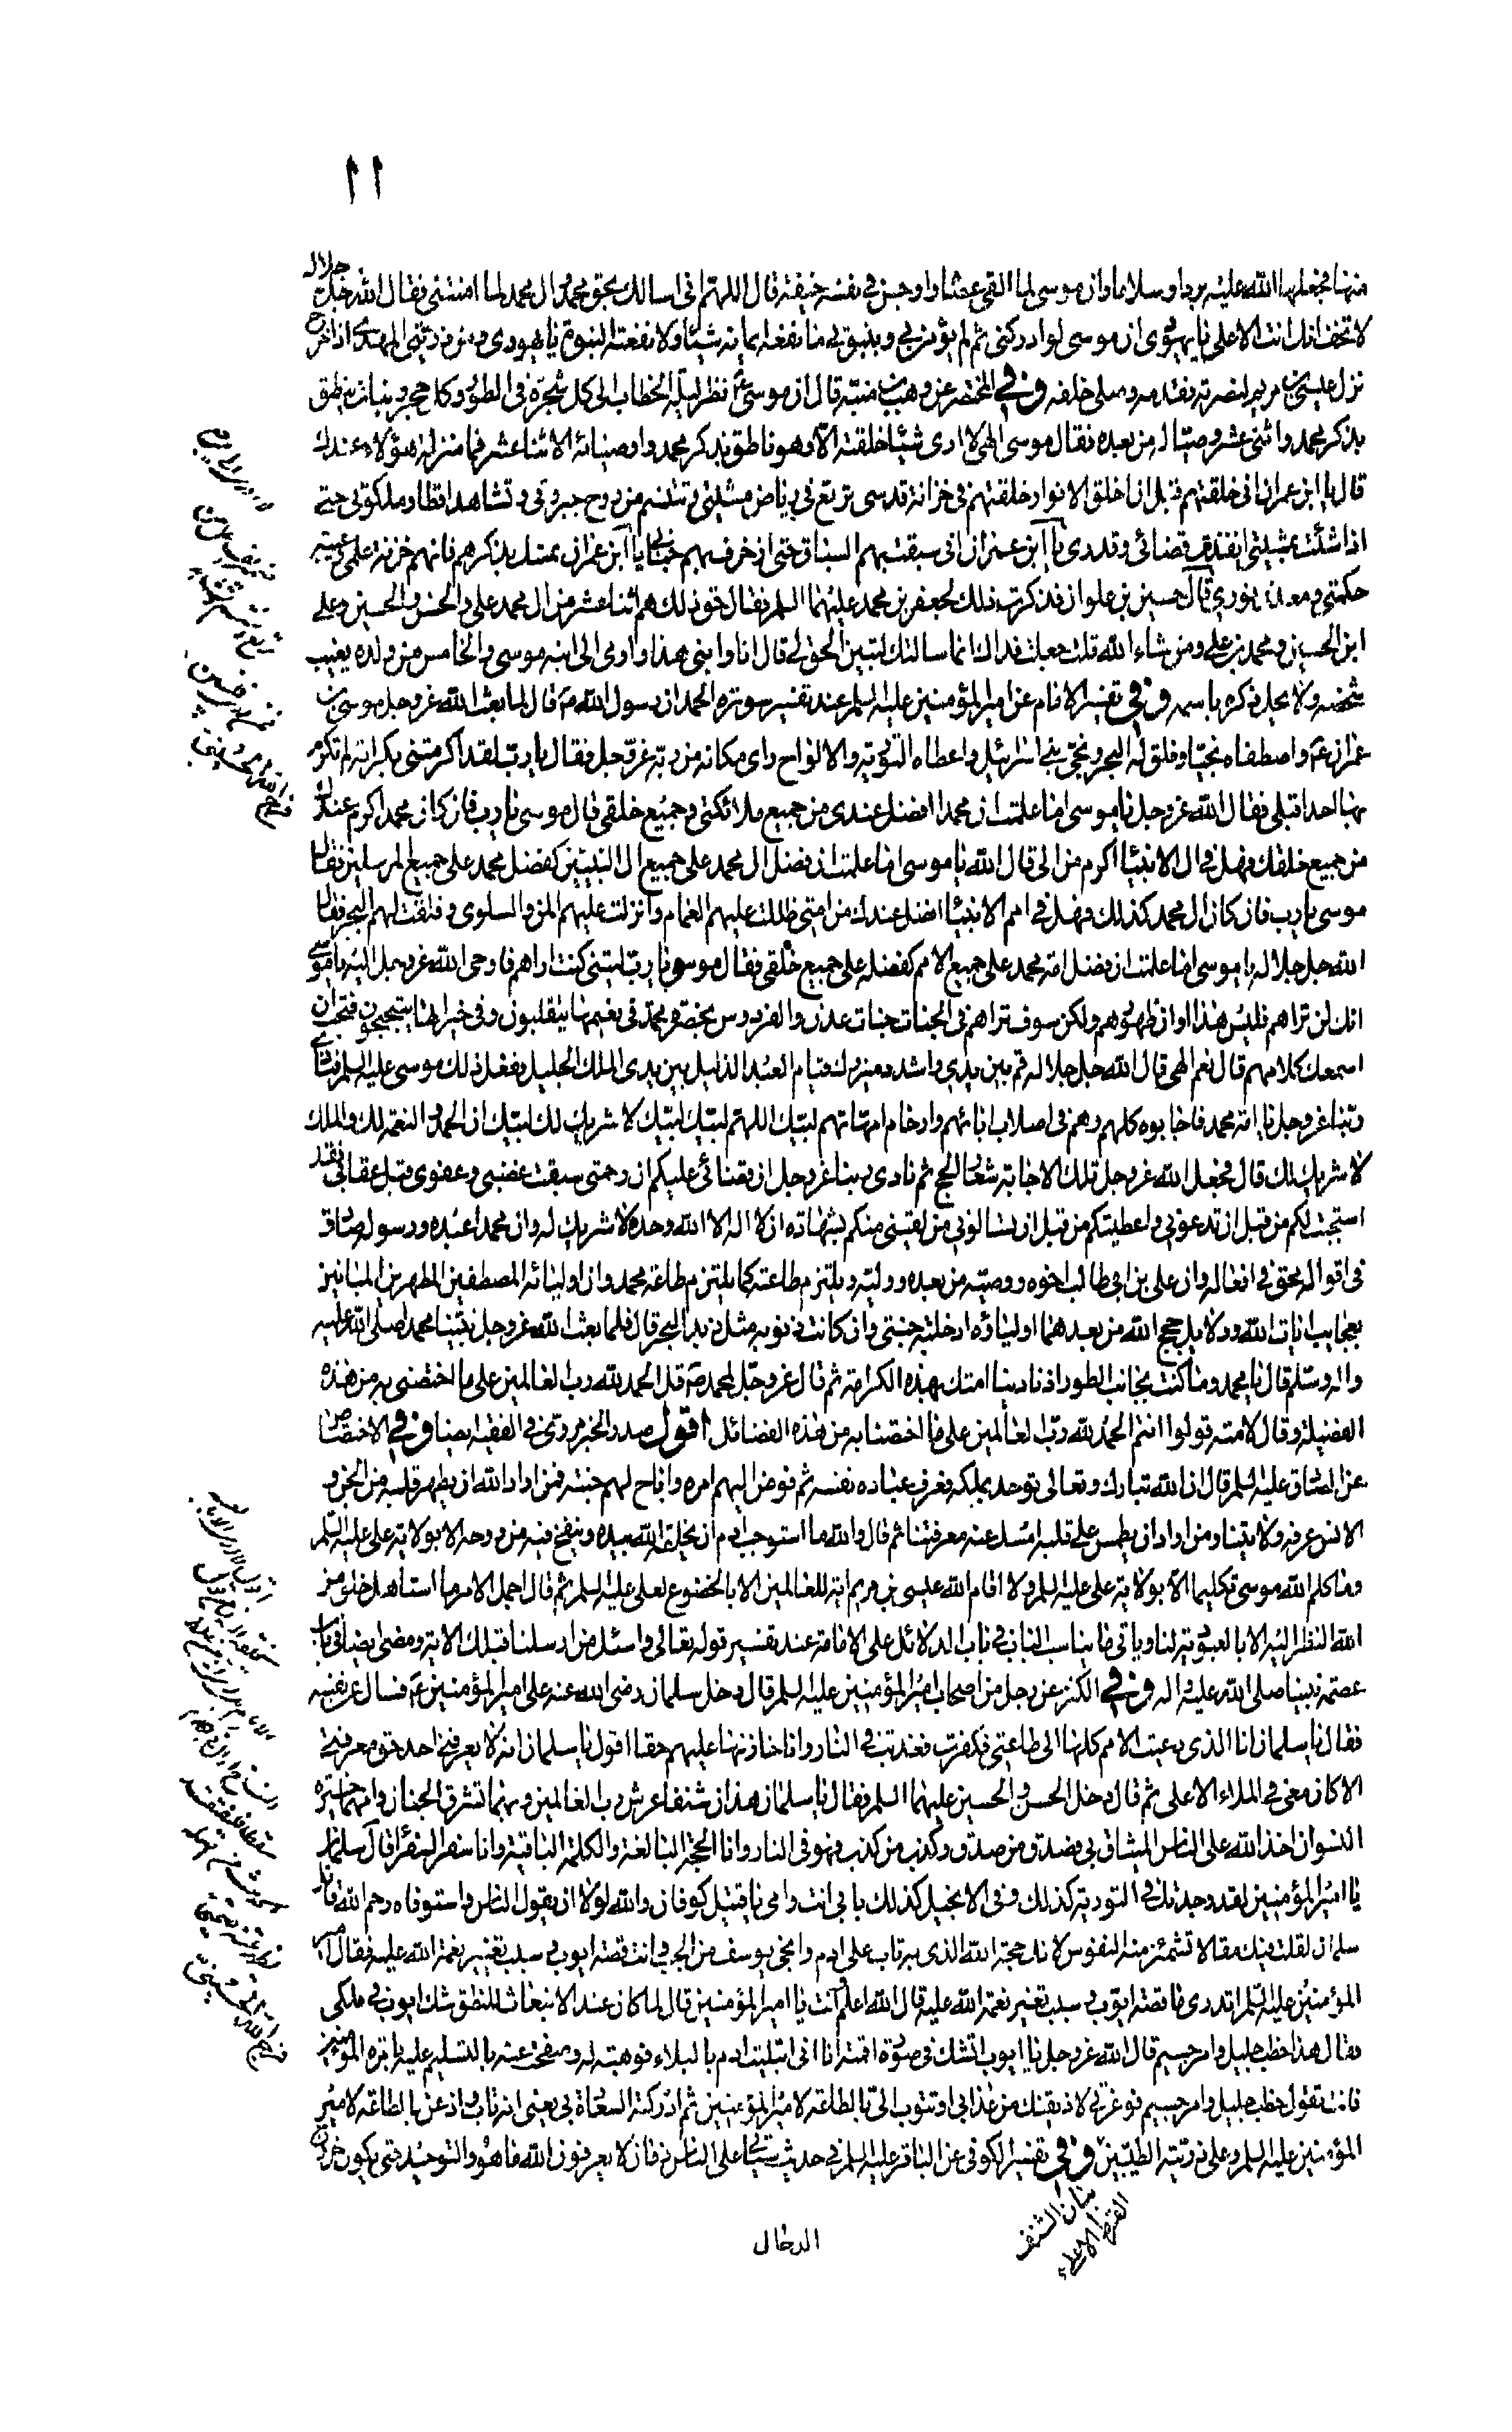 ١١
منها فجعلها الله عليه بردا وسلاما وان موسى لما القى عصاه واوجس في نفسه خيفة قال اللهم اني اسالك بحق محمد وال محمد لما امنتني فقال الله جل جلاله
لا تخف انك انت الاعلى يا يهودي ان موسى لو ادركني ثم لم يؤمن بي وبنبوتي ما نفعه ايمانه شيئا ولا نفعته النبوة يا يهودي ومن ذريتي المهدي اذا خرج
نزل عيسى بن مريم لنصرته فقدمه وصلى خلفه وفي المختصر عن وهب بن منبه قال ان موسى ع نظر ليلة الخطاب الى كل شجرة في الطور وكل حجر ونبات ينطق
بذكر محمد واثنى عشر وصيا له من بعده فقال موسى الهي لا ارى شيئا خلقته الا وهو ناطق بذكر محمد واوصيائه الاثنا عشر فما منزلة هؤلاء عندك
قال يا ابن عمران اني خلقتهم قبل ان اخلق الانوار وخلقتهم في خزانة قدسي ترتع في رياض مشيتي وتتنسم من روح جبروتي وتشاهد اقطار ملكوتي حتى
اذا شئت بمشيتي انفذت قضائي وقدري يا ابن عمران اني سبقت بهم السباق حتى ازخرف بهم جناني يا ابن عمران تمسك بذكرهم فانهم خزنة علمي وعيبة
حكمتي ومعدن نوري قال حسين بن علوان فذكرت ذلك لجعفر بن محمد عليهما السلم فقال حق ذلك هم اثنا عشر من ال محمد علي والحسن والحسين وعلي
ابن الحسين ومحمد بن علي ومن شاء الله قلت جعلت فداك انما سالتك لتبين الحق لي قال انا وابني هذا واومى الى ابنه موسى والخامس من ولده يغيب
شخصه ولا يحل ذكره باسمه وفي تفسير الامام عن امير المؤمنين عليه السلم عند تفسير سورة الحمد ان رسول الله ص قال لما بعث الله عز وجل موسى بن
عمران ع واصطفاه نجيا وفلق له البحر ونجى بني اسرائيل واعطاه التورية والالواح راى مكانه من ربه عز وجل فقال يا رب لقد اكرمتني بكرامة لم تكرم
بها احدا قبلي فقال الله عز وجل يا موسى اما علمت ان محمدا افضل عندي من جميع ملائكتي وجميع خلقي قال موسى يا رب فان كان محمد اكرم عندك
من جميع خلقك فهل في ال الانبيا اكرم من الى قال الله يا موسى اما علمت ان فضل ال محمد على جميع ال النبيين كفضل محمد على جميع المرسلين فقال
موسى يا رب فان كان ال محمد كذلك فهل في امم الانبيا افضل عندك من امتي ظللت عليهم الغمام وانزلت عليهم المن والسلوى وفلقت لهم البحر فقال
الله جل جلاله يا موسى اما علمت ان فضل امة محمد على جميع الامم كفضله على جميع خلقي فقال موسى يا رب ليتني كنت اراهم فاوحى الله عز وجل اليه يا موسى
انك لن تراهم فليس هذا اوان ظهورهم ولكن سوف تراهم في الجنات جنات عدن والفردوس بحضرة محمد في نعيمها يتقلبون وفي خيراتها يتبجبحون افتحب ان
اسمعك كلامهم قال نعم الهي قال الله جل جلاله قم بين يدي واشدد ميزرك قيام العبد الذليل بين يدي الملك الجليل ففعل ذلك موسى عليه السلم فنادى
ربنا عز وجل يا امة محمد فاجابوه كلهم وهم في اصلاب ابائهم وارحام امهاتهم لبيك اللهم لبيك لبيك لا شريك لك لبيك ان الحمد والنعمة لك والملك
لا شريك لك قال فجعل الله عز وجل تلك الاجابة شعار الحج ثم نادى ربنا عز وجل ان قضائي عليكم ان رحمتي سبقت غضبي وعفوي قبل عقابي فقد
استجبت لكم من قبل ان تدعوني واعطيتكم من قبل ان تسالوني من لقيني منكم بشهادة ان لا اله الا الله وحده لا شريك له وان محمدا عبده ورسوله صادق
في اقواله محق في افعاله وان علي بن ابي طالب اخوه ووصيه من بعده ووليه ويلتزم طاعته كما يلتزم طاعة محمد وان اوليائه المصطفين المطهرين المبانين
بعجايب ايات الله ودلايل حجج الله من بعدهما اولياؤه ادخلته جنتي وان كانت ذنوبه مثل زبد البحر قال فلما بعث الله عز وجل نبينا محمد صلى الله عليه
واله وسلم قال يا محمد وما كنت بجانب الطور اذ نادينا امتك بهذه الكرامة ثم قال عز وجل لمحمد ص قل الحمد لله رب العالمين على ما اختصني به من هذه
الفضيلة وقال لامته قولوا انتم الحمد لله رب العالمين على ما اختصنا به من هذه الفضائل اقول صدر الخبر مروي في الفقيه ايضا وفي الاختصاص
عن الصادق عليه السلم قال ان الله تبارك وتعالى توحد بملكه فعرف عباده نفسه ثم فوض اليهم امره واباح لهم جنته فمن اراد الله ان يطهر قلبه من الجن و
الانس عرفه ولايتنا ومن اراد ان يطمس على قلبه امسك عنه معرفتنا ثم قال والله ما استوجب ادم ان يخلقه الله بيده وينفخ فيه من روحه الا بولاية علي عليه السلم
وما كلم الله موسى تكليما الا بولاية علي عليه السلم ولا اقام الله عيسى بن مريم اية للعالمين الا بالخضوع لعلي عليه السلم ثم قال اجمل الامر ما استاهل خلق من
الله النظر اليه الا بالعبودية لنا وياتي ما يناسب الباب في باب الدلائل على الامامة عند تفسير قوله تعالى واسئل من ارسلنا قبلك الاية ومضى ايضا في باب
عصمة نبينا صلى الله عليه واله وفي الكنز عن رجل من اصحاب امير المؤمنين عليه السلم قال دخل سلمان رضي الله عنه على امير المؤمنين ع فسال عن نفسه
فقال يا سلمان انا الذي دعيت الامم كلها الى طاعتي فكفرت فعذبت في النار وانا خازنها عليهم حقا اقول يا سلمان انه لا يعرفني احد حق معرفتي
الا كان معي في الملاء الاعلى ثم قال دخل الحسن والحسين عليهما السلم فقال يا سلمان هذان شنفا عرش رب العالمين وبهما تشرق الجنان وامهما خيرة
النسوان اخذ الله على الناس الميثاق بي فصدق من صدق وكذب من كذب فهو في النار وانا الحجة البالغة والكلمة الباقية وانا سفير السفراء قال سلمان
يا امير المؤمنين لقد وجدتك في التورية كذلك وفي الانجيل كذلك بابي انت وامي يا قتيل كوفان والله لولا ان يقول الناس واشوقاه رحم الله قاتل
سلمان لقلت فيك مقالا تشمئز منه النفوس لانك حجة الله الذي به تاب على ادم وانجى يوسف من الجب وانت قصة ايوب وسبب تغيير نعمة الله عليه فقال امير
المؤمنين عليه السلم اتدري ما قصة ايوب وسبب تغيير نعمة الله عليه قال الله اعلم وانت يا امير المؤمنين قال لما كان عند الانبعاث للنطق شك ايوب في ملكي
فقال هذا خطب جليل وامر جسيم قال الله عز وجل يا ايوب اتشك في صورة اقمته انا اني ابتليت ادم بالبلاء فوهبته له وصفحت عنه بالتسليم عليه بامرة المؤمنين
فانت تقول خطب جليل وامر جسيم فوعزتي لاذيقنك من عذابي او تتوب الي بالطاعة لامير المؤمنين ثم ادركته السعادة بي يعني انه تاب واذعن بالطاعة لامير
المؤمنين عليه السلم وعلى ذريته الطيبين وفي تفسير الكوفي عن الباقر عليه السلم في حديث ياتي على الناس زمان لا يعرفون الله ما هو والتوحيد حتى يكون خروج
بيان الشنف
القرط الاعلى
الدجال